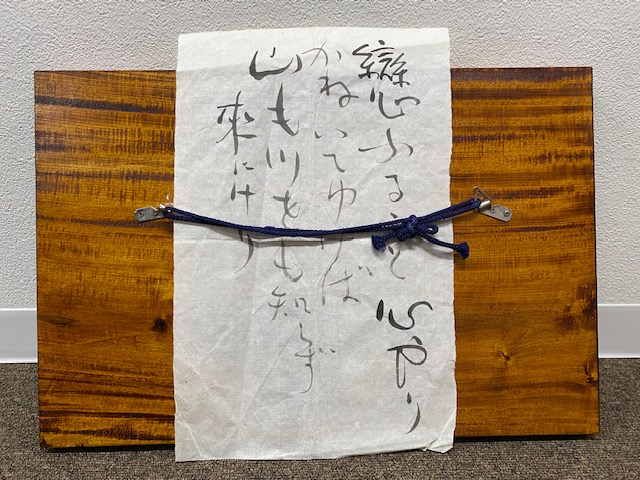 戀ふること心やり
かねいてゆけば
山も川をも知らず
來にけり